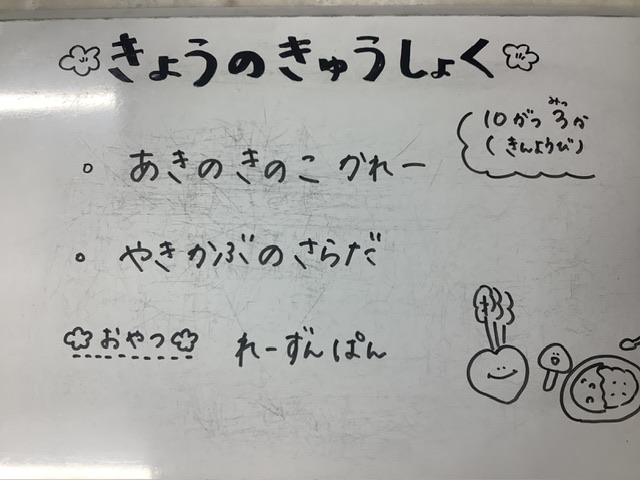 きょうのきゅうしょく
10がつ3か
みっ
(きんようび)
。あきのきのこかれー
。やきかぶのさらだ
おやつ れーずんぱん